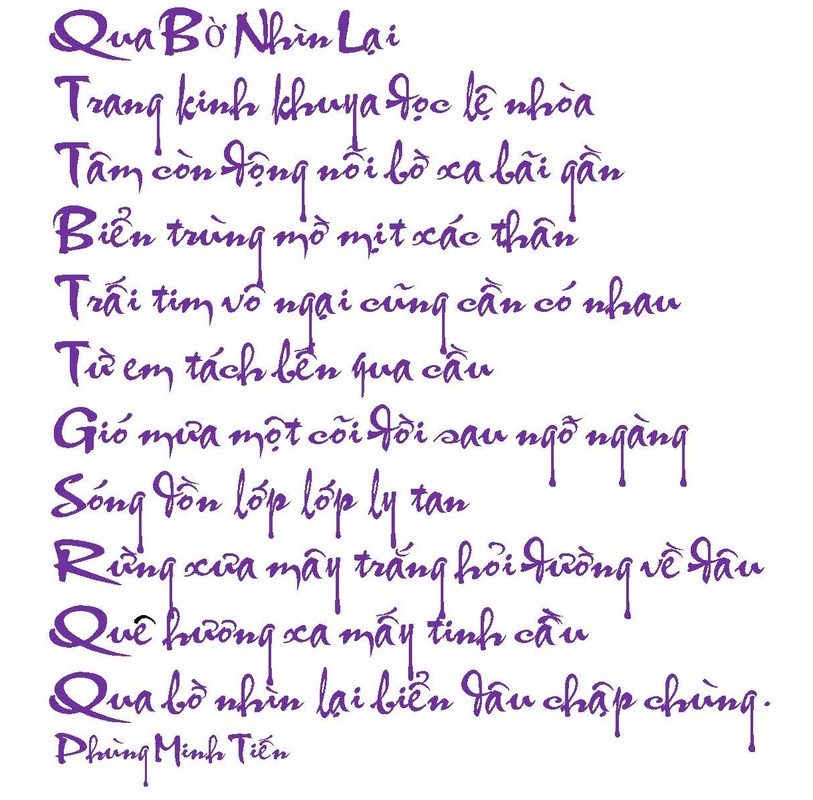 Qua Bờ Nhìn Lại
Trang kinh khuya đọc lệ nhòa
Tâm còn động nỗi bờ xa bãi gần
Biển trùng mờ mịt xác thân
Trái tim vô ngại cũng cần có nhau
Từ em tách bến qua cầu
Gió mưa một cõi đời sau ngỡ ngàng
Sóng dồn lớp lớp ly tan
Rừng xưa mây trắng hỏi đường về đâu
Quê hương xa mấy tinh cầu
Qua bờ nhìn lại biển dâu chập chùng.
Phùng Minh Tiến